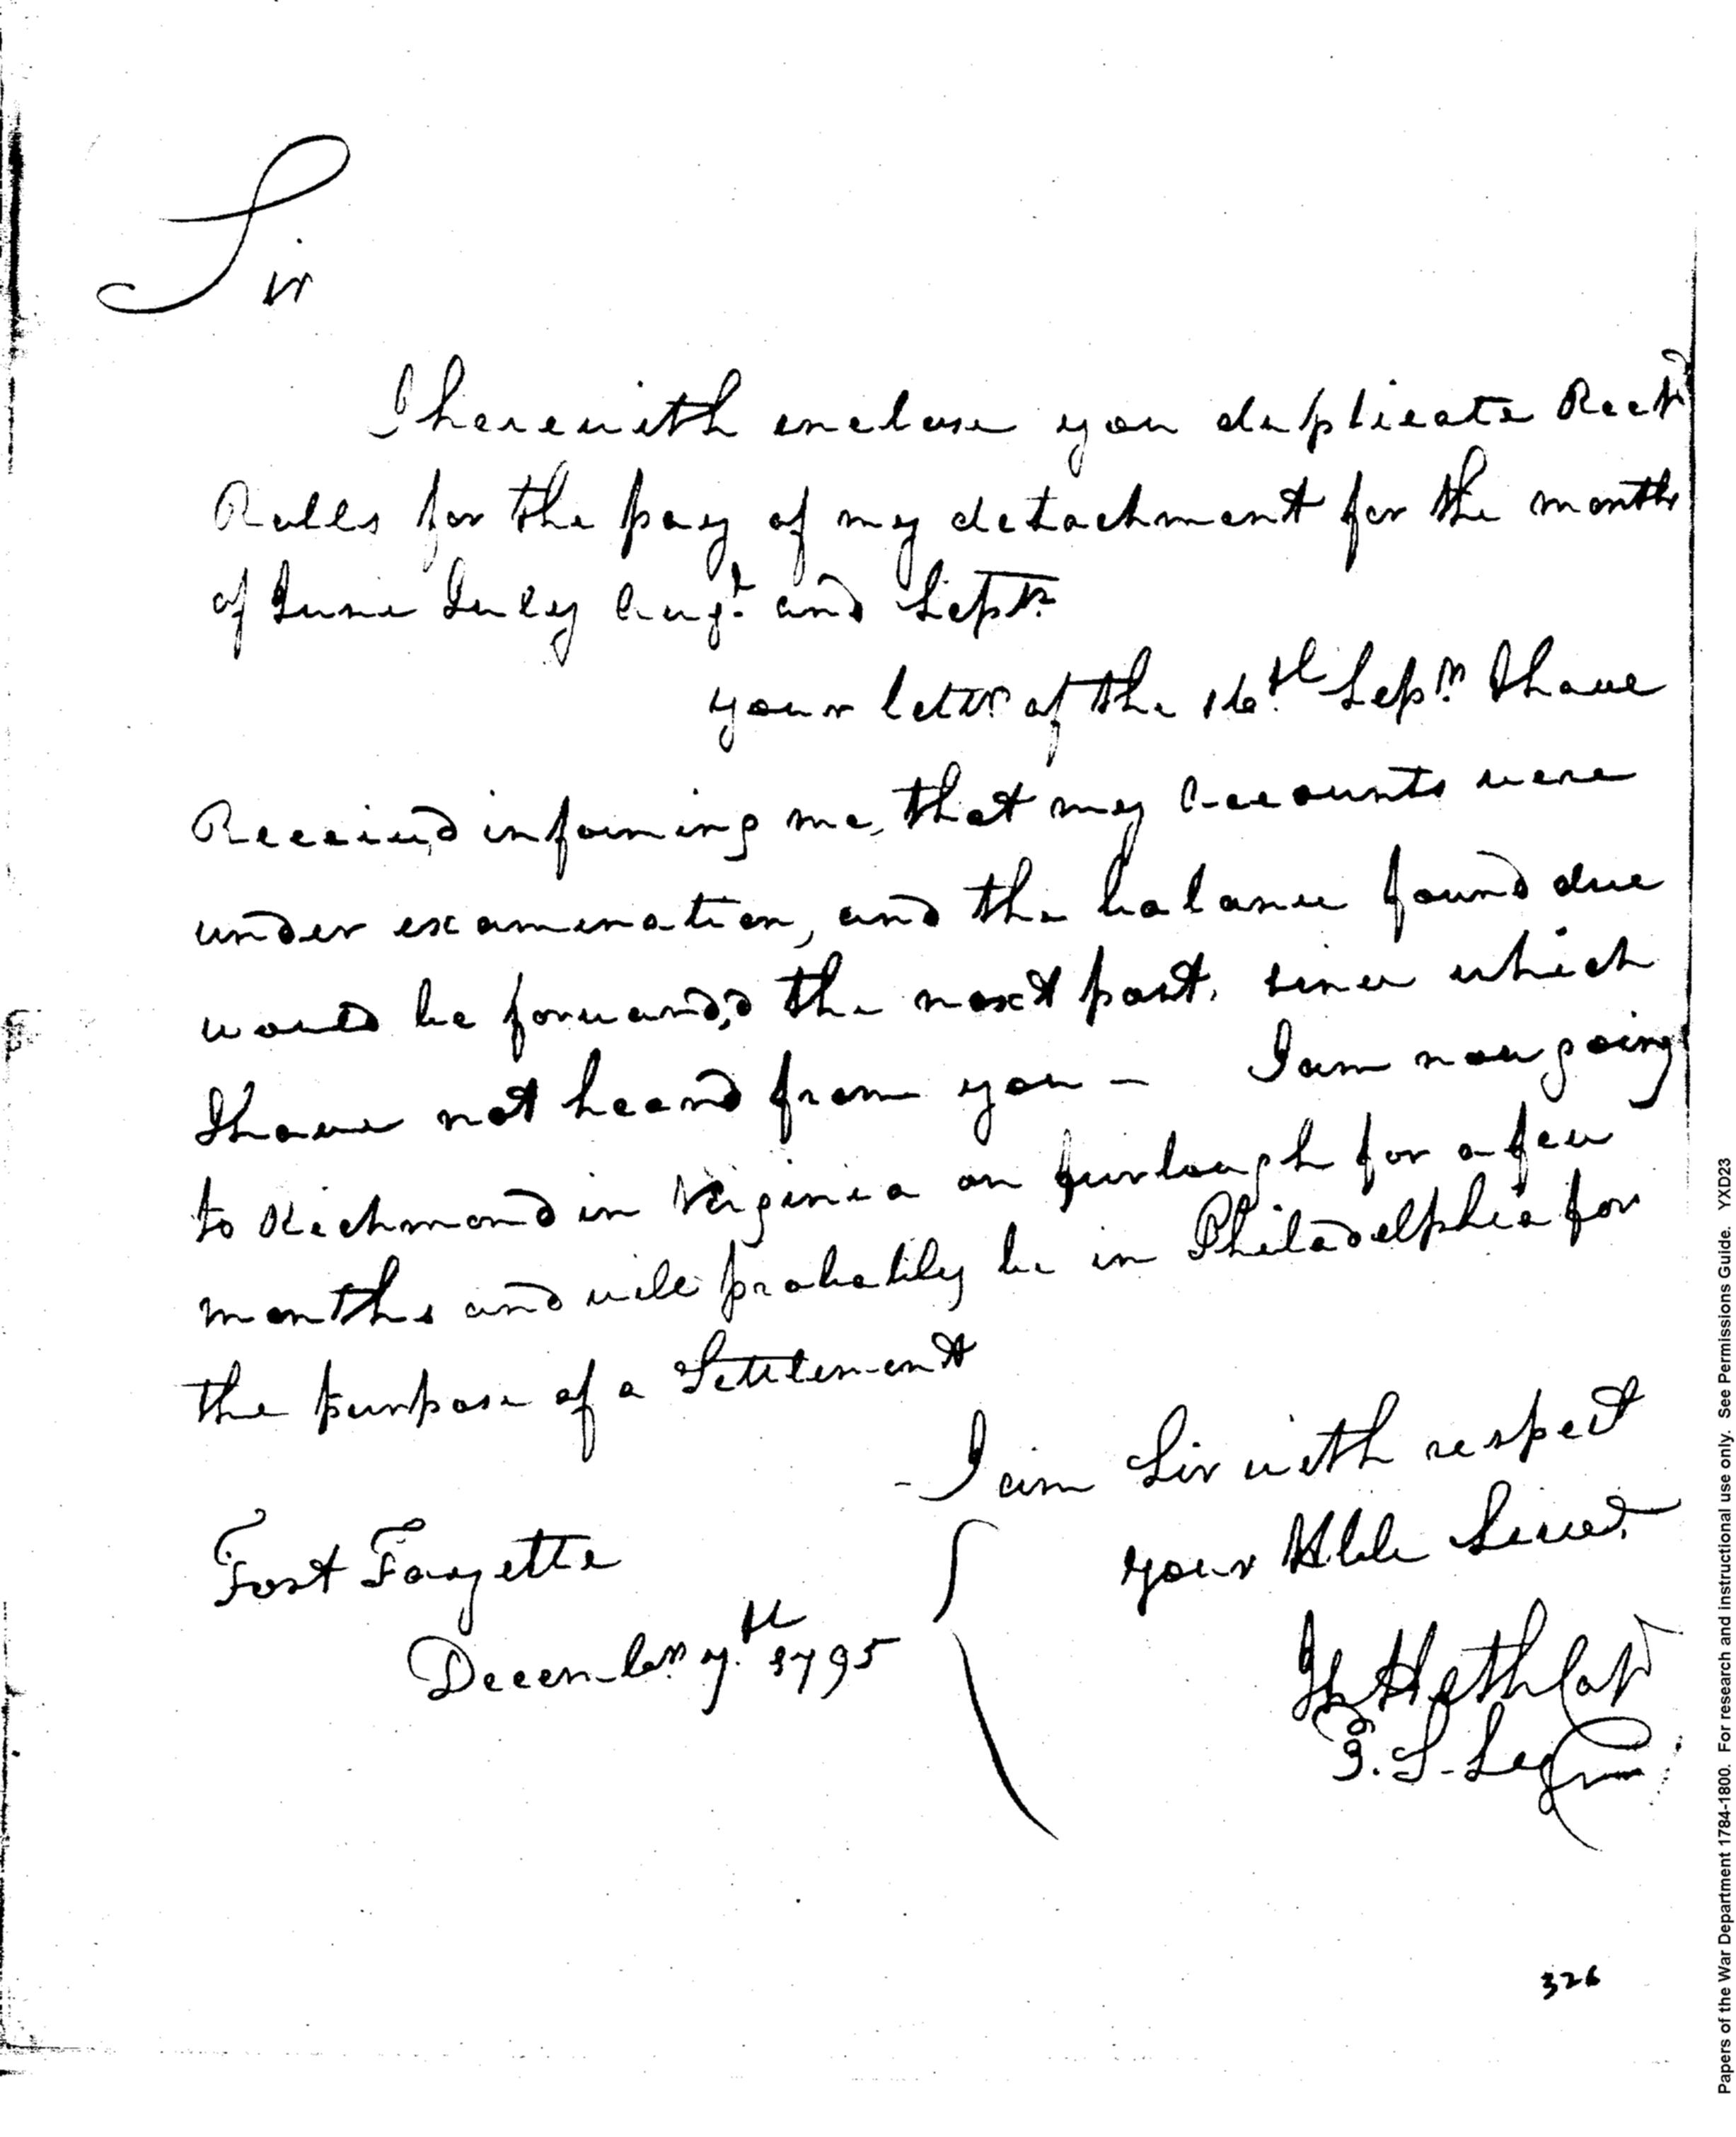 Sir
I herewith enclose you duplicate Rect
Rolls for the pay of my detachment for the months
of June July Augt. and Septr.
your letter of the 16th. Sepr. I have
Received informing me, that my Accounts were
under examination, and the balance found due
would be forward,d the next post, since which
I have not heard from you - I am now going
to Richmond in Virginia on furlough for a few
months and will probably be in Philadelphia for
the purpose of a Settlement
- I am Sir with respect
your Hble Servt.
Fort Fayette
December 7th. 1795
Heth Capt
3. S. Legn
326
Papers of the War Department 1784-1800. For research and instructional use only. See Permissions Guide. YXD23